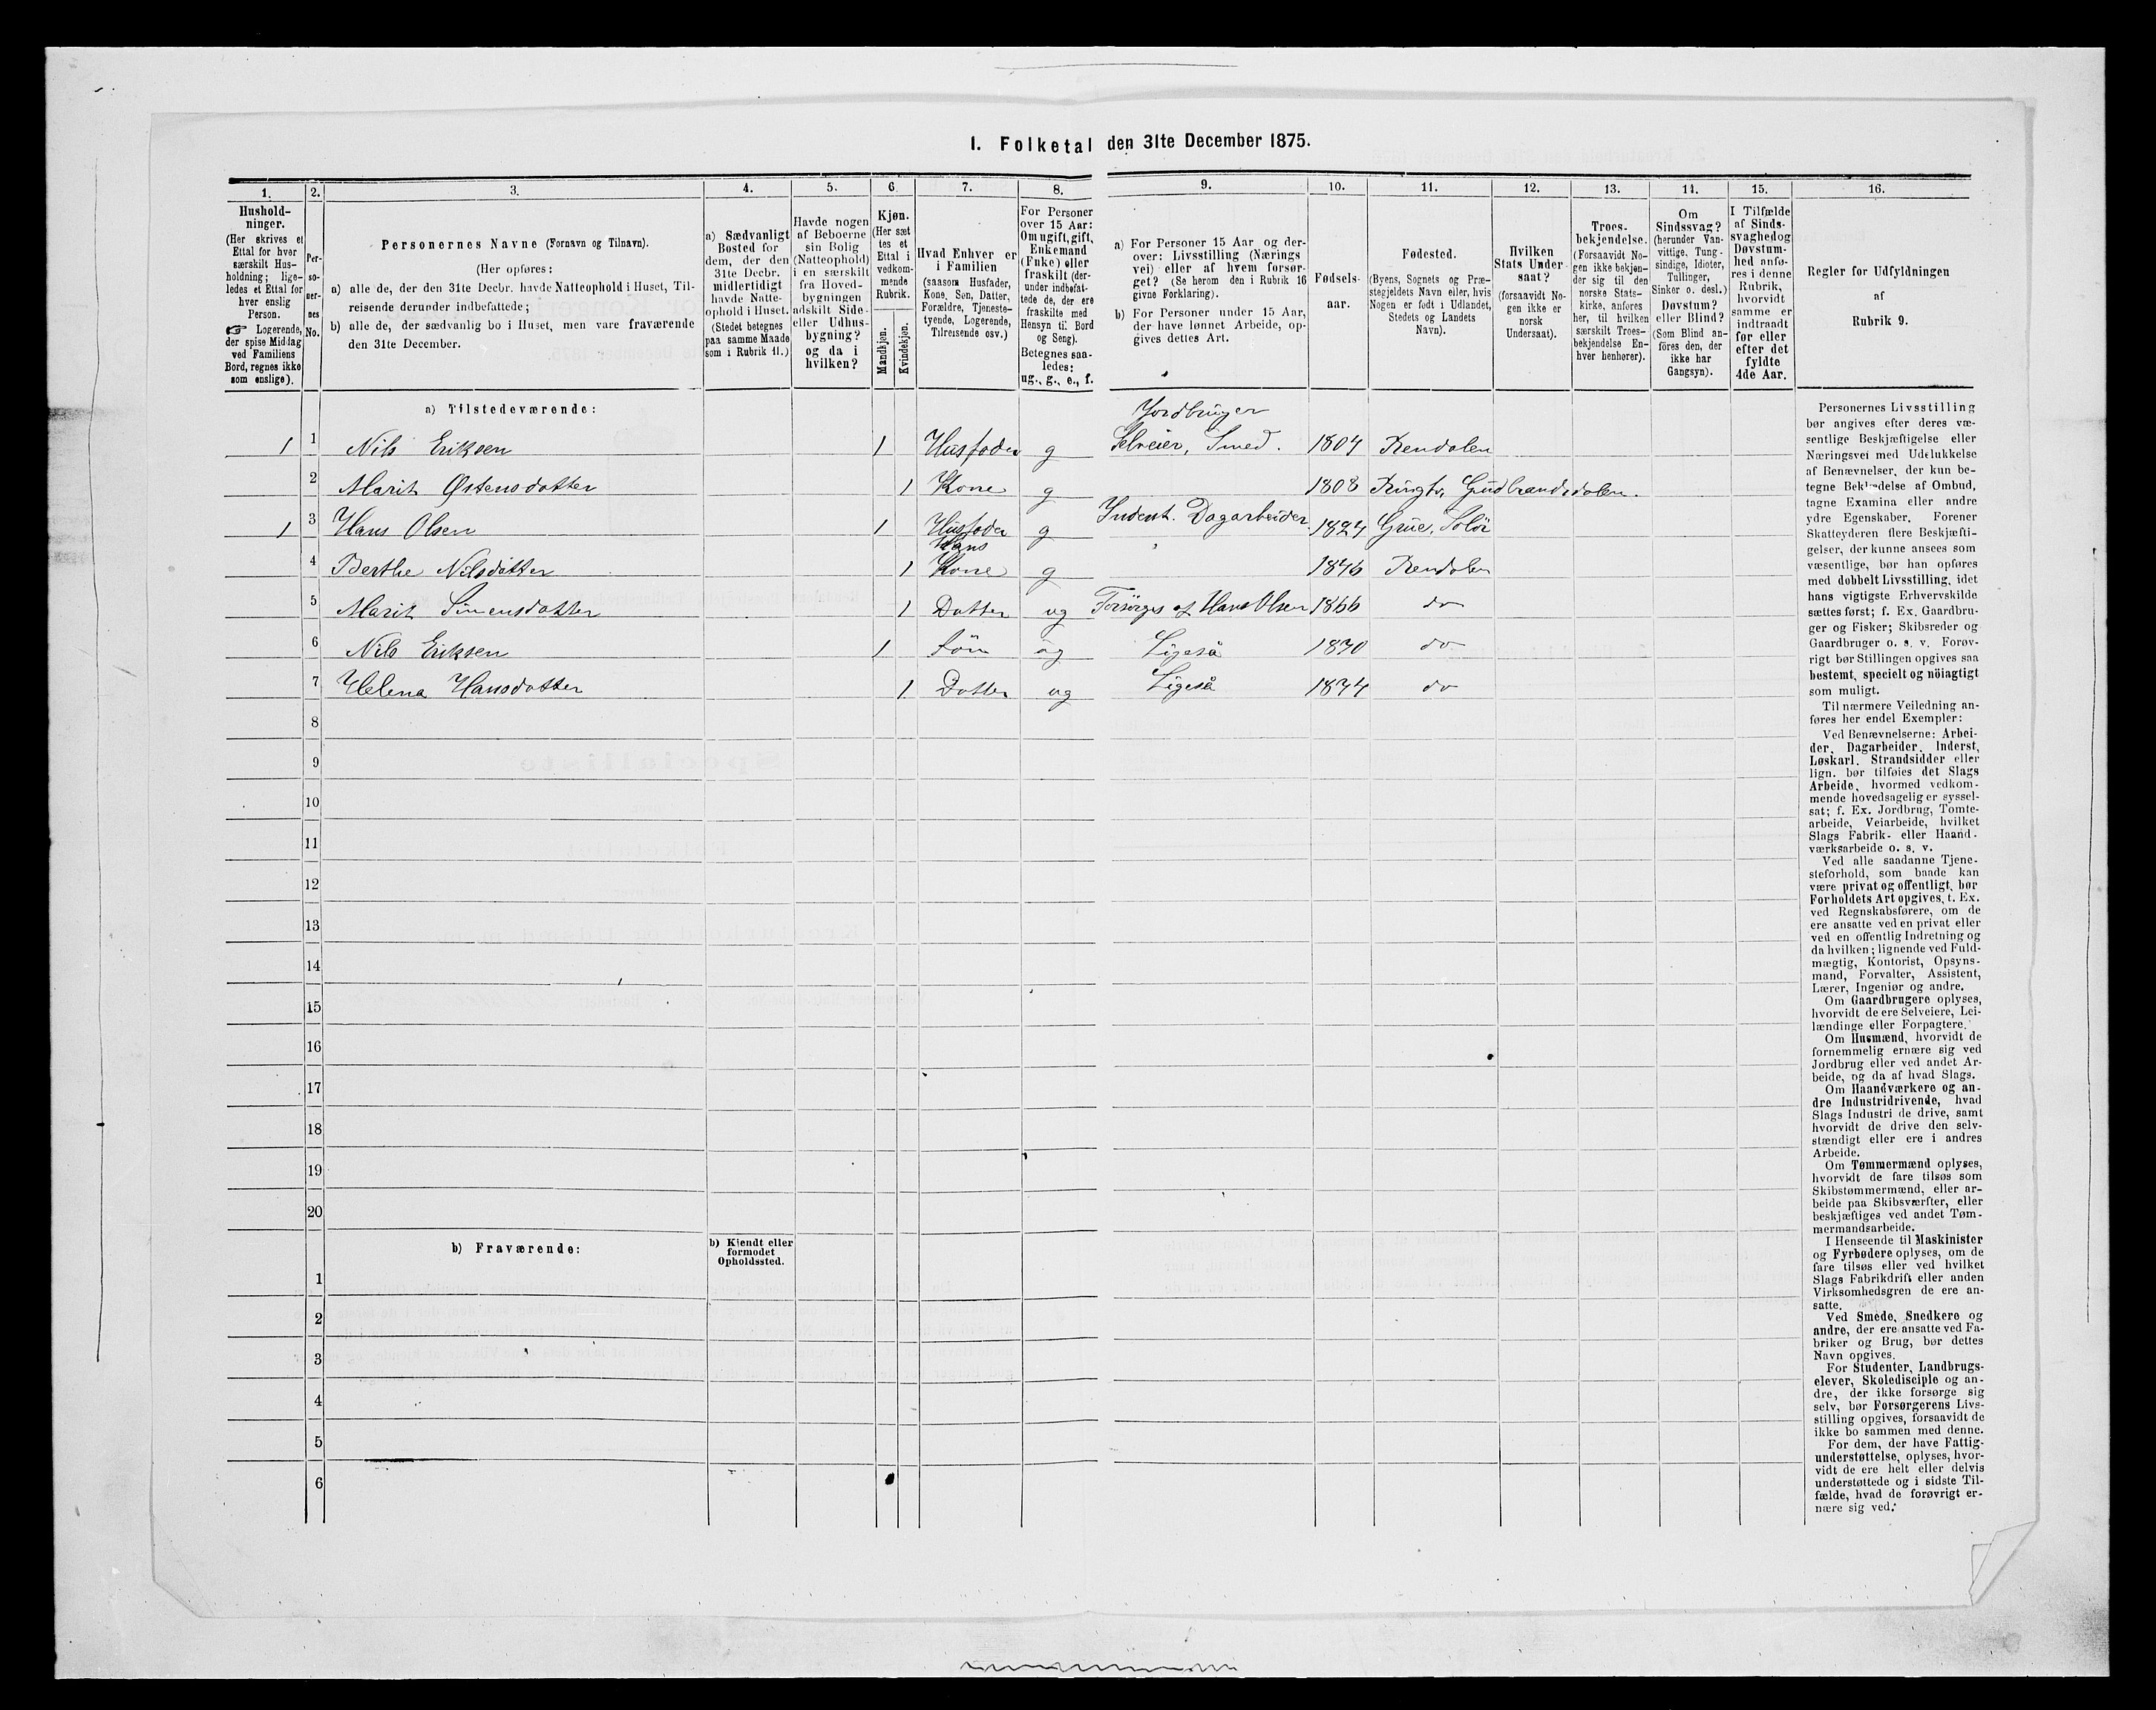 I. Folketal den 31te December 1875.
1. 2. 3. 4. 5. 6. 7. 8. 9. 10. 11. 12. 13. 14. 15. 16.
Hushold-
ninger.
(Her skrives et
Ettal for hver
særskilt Hus-
holdning; lige-
ledes et Ettal for
hver enslig
Person.
☞ Logerende,
der spise Middag
ved Familiens
Bord, regnes ikke
som enslige).
Per-
so-
ner-
nes
No.
Personernes Navne (Fornavn og Tilnavn).
(Her opføres:
a) alle de, der den 31te Decbr. havde Natteophold i Huset, Til-
reisende derunder indbefattede;
b) alle de, der sædvanlig bo i Huset, men vare fraværende
den 31te December.
a) Sædvanligt
Bosted for
dem, der den
31te Decbr.
midlertidigt
havde Natte-
ophold i Huset.
(Stedet betegnes
paa samme Maade
som i Rubrik 11.)
Havde nogen
af Beboerne
sin Bolig
(Natteophold)
i en særskilt
fra Hoved-
bygningen
adskilt Side-
eller Udhus-
bygning?
og da i
hvilken?
Kjøn.
(Her sæt
tes et
Ettal i
vedkom-
mende
Rubrik.
Mandkjøn.
Kvindekjøn.
Hvad Enhver er
i Familien
(saasom Husfader,
Kone, Søn, Datter,
Forældre, Tjeneste-
tyende, Logerende,
Tilreisende osv.)
For Personer
over 15 Aar:
Om ugift, gift,
Enkemand
(Enke) eller
fraskilt (der-
under indbefat-
tede de, der ere
fraskilte med
Hensyn til Bord
og Seng).
Betegnes saa-
ledes:
ug., g., e., f.
a) For Personer 15 Aar og der-
over: Livsstilling (Nærings
vei) eller af hvem forsør-
get? (Se herom den i Rubrik 16
givne Forklaring).
b) For Personer under 15 Aar,
der have lønnet Arbeide, op-
gives dettes Art.
Fødsels-
aar.
Fødested.
(Byens, Sognets og Præ-
stegjeldets Navn eller, hvis
Nogen er født i Udlandet,
Stedets og Landets
Navn).
Hvilken
Stats Under
saat?
(forsaavidt No-
gen ikke er
norsk
Undersaat).
Troes-
bekjendelse.
(Forsaavidt No-
gen ikke bekjen-
der sig til den
norske Stats-
kirke, anføres
her, til hvilken
særskilt Troes-
bekjendelse En-
hver henhører).
Om
Sindssvag?
(herunder Van-
vittige, Tung-
sindige, Idioter,
Tullinger,
Sinker o. desl.)
Døvstum?
eller Blind?
(Som Blind an-
föres den, der
ikke har
Gangsyn).
I Tilfælde
af Sinds-
svaghed og
Døvstum-
hed anfø-
res i denne
Rubrik,
hvorvidt
samme er
indtraadt
før eller
efter det
fyldte
4de Aar.
Regler for Udfyldningen
af
Rubrik 9.
a) Tilstedeværende:
Jordbruger
1 1 Nils Eriksen 1 Husfader g Selveier, Smed. 1804 Rendalen
2 Marit Østensdatter 1 Kone g 1808 Gudbrandsdalen.
1 3 Hans Olsen 1 Husfader g Inderst. Dagarbeider. 1824 Grue, Solör
Hans
4 Berthe Nilsdatter 1 Kone g 1846 Rendalen
5 Marit Simensdatter 1 Datter ug Forsörges af Hans Olsen 1866 do
6 Nils Eriksen 1 Sön ug Ligeså 1870 do
7 Helena Hansdatter 1 Datter ug Ligeså 1874 do
8
9
10
11
12
13
14
15
16
17
18
19
20
b) Fraværende:
b) Kjendt eller
formodet
Opholdssted.
1
2
3
4
5
6
Personernes Livsstilling
bør angives efter deres væ-
sentlige Beskjæftigelse eller
Næringsvei med Udelukkelse
af Benævnelser, der kun be-
tegne Beklædelse af Ombud,
tagne Examina eller andre
ydre Egenskaber. Forener
Skatteyderen flere Beskjæfti-
gelser, der kunne ansees som
væsentlige, bør han opføres
med dobbelt Livsstilling, idet
hans vigtigste Erhvervskilde
sættes først; f. Ex. Gaardbru-
ger og Fisker; Skibsreder og
Gaardbruger o. s. v. Forøv-
rigt bør Stillingen opgives saa
bestemt, specielt og nöiagtigt
som muligt.
Til nærmere Veiledning an-
føres her endel Exempler:
Ved Benævnelserne: Arbei-
der, Dagarbeider, Inderst,
Løskarl, Strandsidder eller
lign. bør tilføies det Slags
Arbeide, hvormed vedkom-
mende hovedsagelig er syssel-
sat; f. Ex. Jordbrug, Tomte-
arbeide, Veiarbeide, hvilket
Slags Fabrik- eller Haand-
værksarbeide o. s. v.
Ved alle saadanne Tjene-
steforhold, som baade kan
være privat og offentligt, bør
Forholdets Art opgives, t. Ex.
ved Regnskabsførere, om de
ere ansatte ved en privat eller
ved en offentlig Indretning og
da hvilken; lignende ved Fuld-
mægtig, Kontorist, Opsyns-
mand, Forvalter, Assistent,
Lærer, Ingeniør og andre.
Om Gaardbrugere oplyses,
hvorvidt de ere Selveiere, Lei-
lændinge eller Forpagtere.
Om Husmænd, hvorvidt de
fornemmelig ernære sig ved
Jordbrug eller ved andet Ar-
beide, og da af hvad Slags.
Om Haandværkere og an-
dre Industridrivende, hvad
Slags Industri de drive, samt
hvorvidt de drive den selv-
stændigt eller ere i andres
Arbeide.
Om Tømmermænd oplyses,
hvorvidt de fare tilsøs som
Skibstømmermænd, eller ar-
beide paa Skibsværfter, eller
beskjæftiges ved andet Tøm-
mermandsarbeide.
I Henseende til Maskinister
og Fyrbødere oplyses, om de
fare tilsøs eller ved hvilket
Slags Fabrikdrift eller anden
Virksomhedsgren de ere an-
satte.
Ved Smede, Snedkere og
andre, der ere ansatte ved Fa-
briker og Brug, bør dettes
Navn opgives.
For Studenter, Landbrugs-
elever, Skoledisciple og an-
dre, der ikke forsørge sig
selv, bør Forsørgerens Livs-
stilling opgives, forsaavidt de
ikke bo sammen med denne.
For dem, der have Fattig-
understøttelse, oplyses, hvor-
vidt de ere helt eller delvis
understøttede og i sidste Til-
fælde, hvad de forøvrigt er-
nære sig ved.